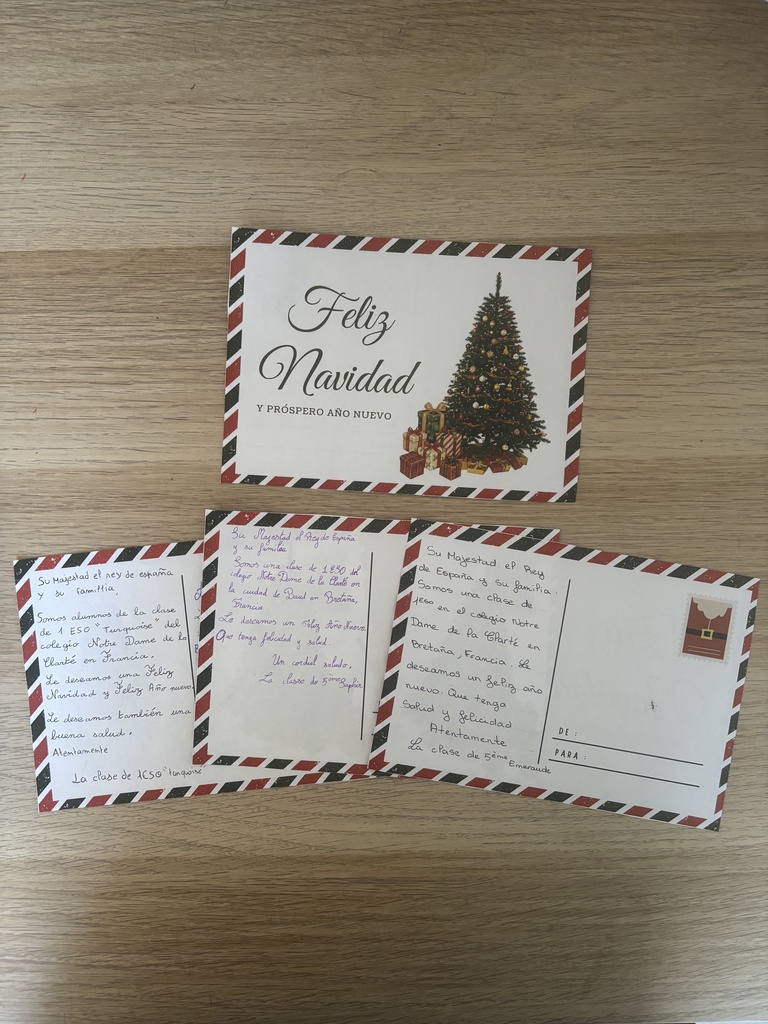 Feliz
Navidad
Y PRÓSPERO AÑO NUEVO
Su Majestad el rey de españa
y su famillia
Somos alumnos de la clase
de 1 ESO "Turquoise" del
colegio Notre Dame de la
Clarté en Francia.
Le deseamos una Feliz
Navidad y Feliz Año nuevo
Le deseamos también una
buena salud.
Atentamente
La clase de 1ESO "turquoise"
Su Majestad el Rey de España
y su familia
Somos una clase de 1ESO del
colegio Notre Dame de la Clarté en
la ciudad de Baud en Bretaña,
Francia
Le deseamos un Feliz Año Nuevo
Que tenga felicidad y salud.
Un cordial saludo,
La classe de 5ème Saphir
Su Majestad el Rey
de España y su familia.
Somos una clase de
1eso en el colegio Notre
Dame de la Clarté en
Bretaña, Francia. Le
deseamos un feliz año
nuevo. Que tenga
Salud y felicidad
Atentamente
La clase de 5ème Emeraude
DE :
PARA :